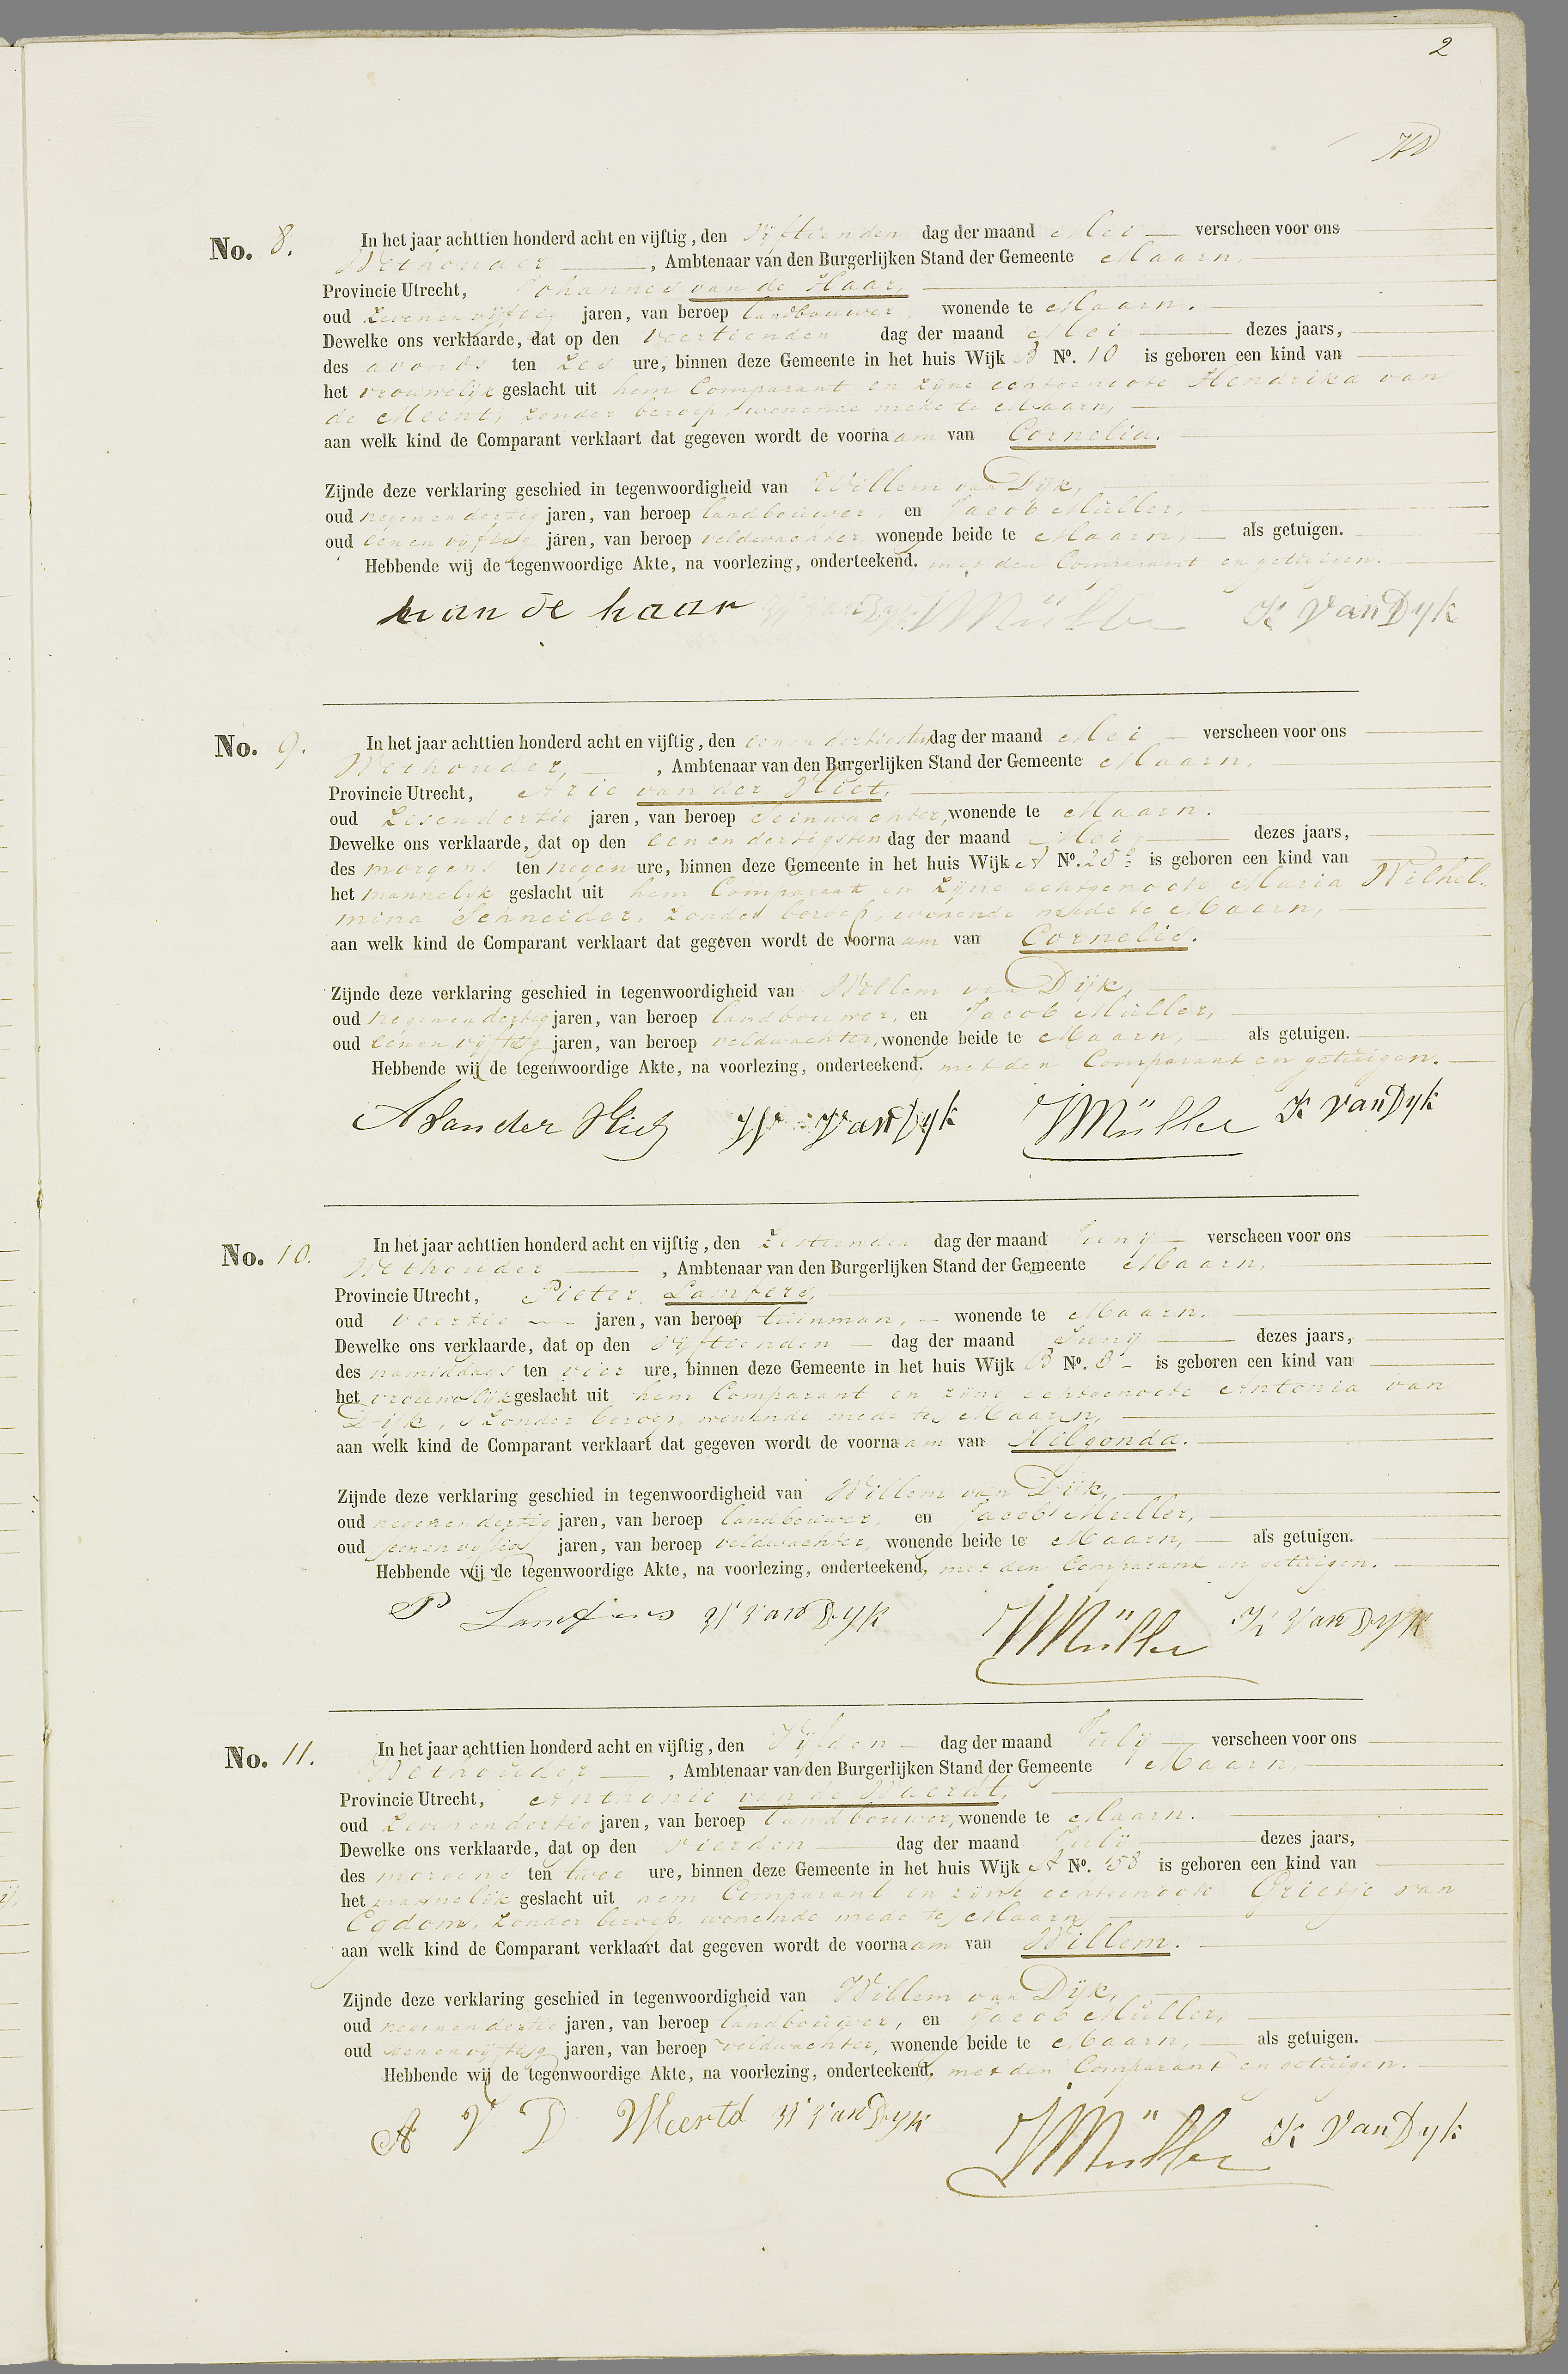 2
No. 8. In het jaar achttien honderd acht en vijftig, den Vijftienden dag der maand Mei — verscheen voor ons
Wethouder —, Ambtenaar van den Burgerlijken Stand der Gemeente Maarn,
Provincie Utrecht, Johannes van de Haar,
oud zevenenvijftig jaren, van beroep landbouwer, wonende te Maarn.
Dewelke ons verklaarde, dat op den veertienden dag der maand Mei — dezes jaars,
des avonds ten zes ure, binnen deze Gemeente in het huis Wijk B No. 10 is geboren een kind van
het vrouwelijk geslacht uit hem Comparant en zijne echtgenoote Hendrika van
de Meent, zonder beroep, wonende mede te Maarn,
aan welk kind de Comparant verklaart dat gegeven wordt de voornaam van Cornelia.
Zijnde deze verklaring geschied in tegenwoordigheid van Willem van Dijk,
oud negenendertig jaren, van beroep landbouwer, en Jacob Müller,
oud eenenvijftig jaren, van beroep veldwachter, wonende beide te Maarn, — als getuigen.
Hebbende wij de tegenwoordige Akte, na voorlezing, onderteekend. met den Comparant en getuigen.
van de haar W van Dyk JMüller K Van Dyk
No. 9. In het jaar achttien honderd acht en vijftig, den eenendertigsten dag der maand Mei — verscheen voor ons
Wethouder, —, Ambtenaar van den Burgerlijken Stand der Gemeente Maarn,
Provincie Utrecht, Arie van der Vliet,
oud zesendertig jaren, van beroep seinwachter, wonende te Maarn.
Dewelke ons verklaarde, dat op den eenendertigsten dag der maand Mei — dezes jaars,
des morgens ten negen ure, binnen deze Gemeente in het huis Wijk A No. 25 is geboren een kind van
het mannelijk geslacht uit hem Comparant en zijne echtgenoote Maria Wilhel-
mina Schneider, zonder beroep, wonende mede te Maarn,
aan welk kind de Comparant verklaart dat gegeven wordt de voornaam van Cornelis.
Zijnde deze verklaring geschied in tegenwoordigheid van Willem van Dijk,
oud negenendertig jaren, van beroep landbouwer, en Jacob Müller,
oud eenenvijftig jaren, van beroep veldwachter, wonende beide te Maarn, — als getuigen.
Hebbende wij de tegenwoordige Akte, na voorlezing, onderteekend, met den Comparant en getuigen.
A van der Vliet W van Dyk JMüller K van Dyk
No. 10. In het jaar achttien honderd acht en vijftig, den Zestienden dag der maand Juny — verscheen voor ons
Wethouder —, Ambtenaar van den Burgerlijken Stand der Gemeente Maarn,
Provincie Utrecht, Pieter Lamfers,
oud veertig — jaren, van beroep tuinman, — wonende te Maarn.
Dewelke ons verklaarde, dat op den vijftienden — dag der maand Juny — dezes jaars,
des namiddags ten vier ure, binnen deze Gemeente in het huis Wijk B No. 8 — is geboren een kind van
het vrouwelijk geslacht uit hem Comparant en zijne echtgenoote Antonia van
Dijk, zonder beroep, wonende mede te Maarn,
aan welk kind de Comparant verklaart dat gegeven wordt de voornaam van Hilgonda.
Zijnde deze verklaring geschied in tegenwoordigheid van Willem van Dijk,
oud negenendertig jaren, van beroep landbouwer, en Jacob Muller,
oud eenenvijftig jaren, van beroep veldwachter, wonende beide te Maarn, — als getuigen.
Hebbende wij de tegenwoordige Akte, na voorlezing, onderteekend, met den Comparant en getuigen.
P Lamfers W van Dyk JMüller K Van Dyk
No. 11. In het jaar achttien honderd acht en vijftig, den Vijfden — dag der maand July — verscheen voor ons
Wethouder —, Ambtenaar van den Burgerlijken Stand der Gemeente Maarn,
Provincie Utrecht, Anthonie van de Waerdt,
oud zevenendertig jaren, van beroep landbouwer, wonende te Maarn.
Dewelke ons verklaarde, dat op den vierden — dag der maand July — dezes jaars,
des morgens ten twee ure, binnen deze Gemeente in het huis Wijk A No. 58 is geboren een kind van
het mannelijk geslacht uit hem Comparant en zijne echtgenoote Grietje van
Egdom, zonder beroep, wonende mede te Maarn,
aan welk kind de Comparant verklaart dat gegeven wordt de voornaam van Willem.
Zijnde deze verklaring geschied in tegenwoordigheid van Willem van Dijk,
oud negenendertig jaren, van beroep landbouwer, en Jacob Müller,
oud eenenvijftig jaren, van beroep veldwachter, wonende beide te Maarn, — als getuigen.
Hebbende wij de tegenwoordige Akte, na voorlezing, onderteekend, met den Comparant en getuigen.
A V D Weertd W van Dyk JMüller K Van Dyk